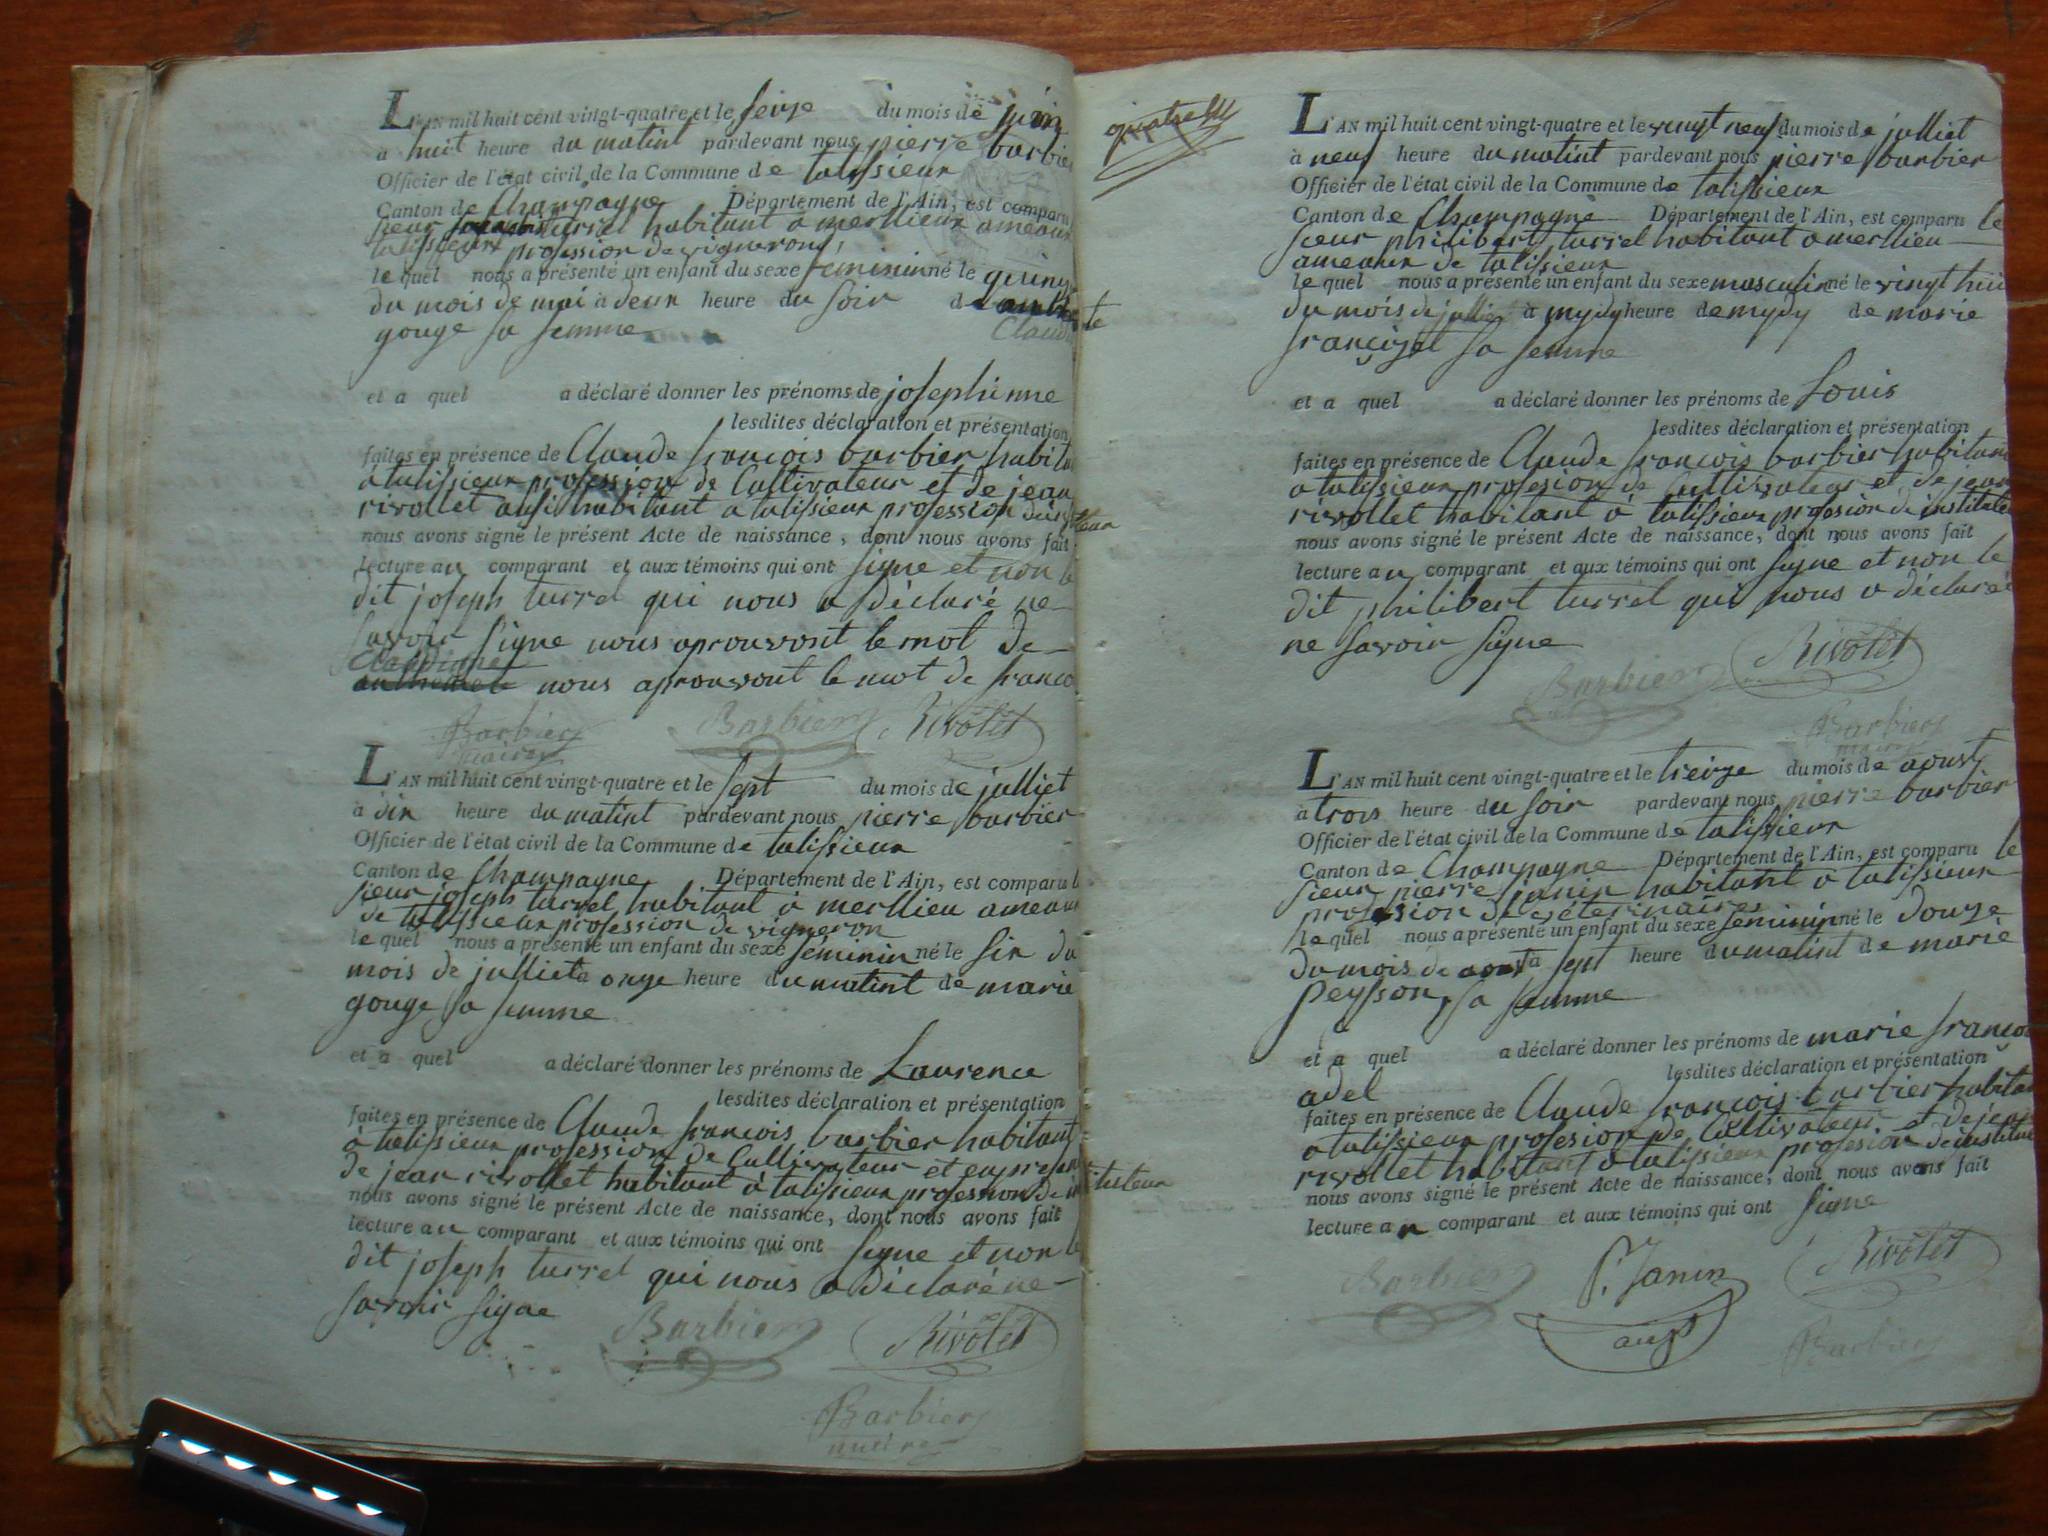 L'AN mil huit cent vingt-quatre et le seize du mois de juin
a huit heure du matint pardevant nous pierre barbier
Officier de l'état civil de la Commune de talissieux
Canton de Champagne Département de l'Ain, est comparu
sieur turrel habitant a merllieux ameaux
talissieux profession de vigneron,
le quel nous a présenté un enfant du sexe feminin né le quinze
du mois de mai à deux heure du soir de
Claudi
gouge sa femme
et a quel a déclaré donner les prénoms de josephinne
lesdites déclaration et présentation
faites en présence de Claude francois barbier habita
à talissieux profession de Cultivateur et de jean
rivollet ausi habitant a talissieux profession
nous avons signé le présent Acte de naissance, dont nous avons fait
lecture au comparant et aux témoins qui ont signe et non le
dit joseph turrel qui nous a déclaré ne
savoir signe nous aprouvont le mot de
Claudigne
nous aprouvont le mot de franco
Barbier maire Barbier Rivolet
L'AN mil huit cent vingt-quatre et le sept du mois de julliet
à dix heure du matint pardevant nous pierre barbier
Officier de l'état civil de la Commune de talissieux
Canton de Champagne Département de l'Ain, est comparu le
sieur joseph turrel habitant à merllieu ameaux
de talissieux profession de vigneron
le quel nous a présenté un enfant du sexe féminin né le six du
mois de julliet a onze heure du matint de marie
gouge sa femme
et a quel a déclaré donner les prénoms de Laurence
lesdites déclaration et présentation
faites en présence de Claude francois barbier habitant
à talissieux profession de Cultivateur et en presen
de jean rivollet habitant à talissieux profession de instituteur
nous avons signé le présent Acte de naissance, dont nous avons fait
lecture au comparant et aux témoins qui ont signe et non le
dit joseph turrel qui nous a déclaré ne
savoir signe
Barbier Rivolet
Barbier
maire
L'AN mil huit cent vingt-quatre et le vingt neuf du mois de julliet
à neuf heure du matint pardevant nous pierre barbier
Officier de l'état civil de la Commune de talissieux
Canton de Champagne Département de l'Ain, est comparu le
sieur philibert turrel habitant a merllieu
ameaux de talissieux
le quel nous a présenté un enfant du sexe masculin né le vingt hui
du mois de julliet à mydy heure de mydy de marie
françojet sa femme
et a quel a déclaré donner les prénoms de Louis
lesdites déclaration et présentation
faites en présence de Claude francois barbier habitant
a talissieux profesion de Cultivateur et de jean
rivollet habitant à talissieux profesion de institute
nous avons signé le présent Acte de naissance, dont nous avons fait
lecture au comparant et aux témoins qui ont signe et non le
dit philibert turrel qui nous a déclaré
ne savoir signe
Barbier Rivolet
Barbier
maire
L'AN mil huit cent vingt-quatre et le treize du mois de aoust
à trois heure du soir pardevant nous pierre barbier
Officier de l'état civil de la Commune de talissieux
Canton de Champagne Département de l'Ain, est comparu le
sieur pierre janin habitant à talissieux
profession de véterinaires
le quel nous a présenté un enfant du sexe feminin né le douze
du mois de aoust a sept heure du matint de marie
peysson sa femme
et a quel a déclaré donner les prénoms de marie franço
lesdites déclaration et présentation
adel
faites en présence de Claude francois barbier habitan
a talissieux profesion de Cultivateur et de jean
rivollet habitant à talissieux profesion de institu
nous avons signé le présent Acte de naissance, dont nous avons fait
lecture au comparant et aux témoins qui ont signe
Barbier P. Janin Rivolet
Barbier